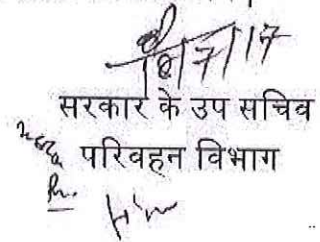 18/7/17
सरकार के उप सचिव
परिवहन विभाग